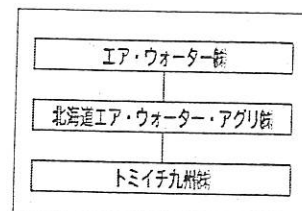 エア・ウォーター㈱
北海道エア・ウォーター・アグリ㈱
トミイチ九州㈱